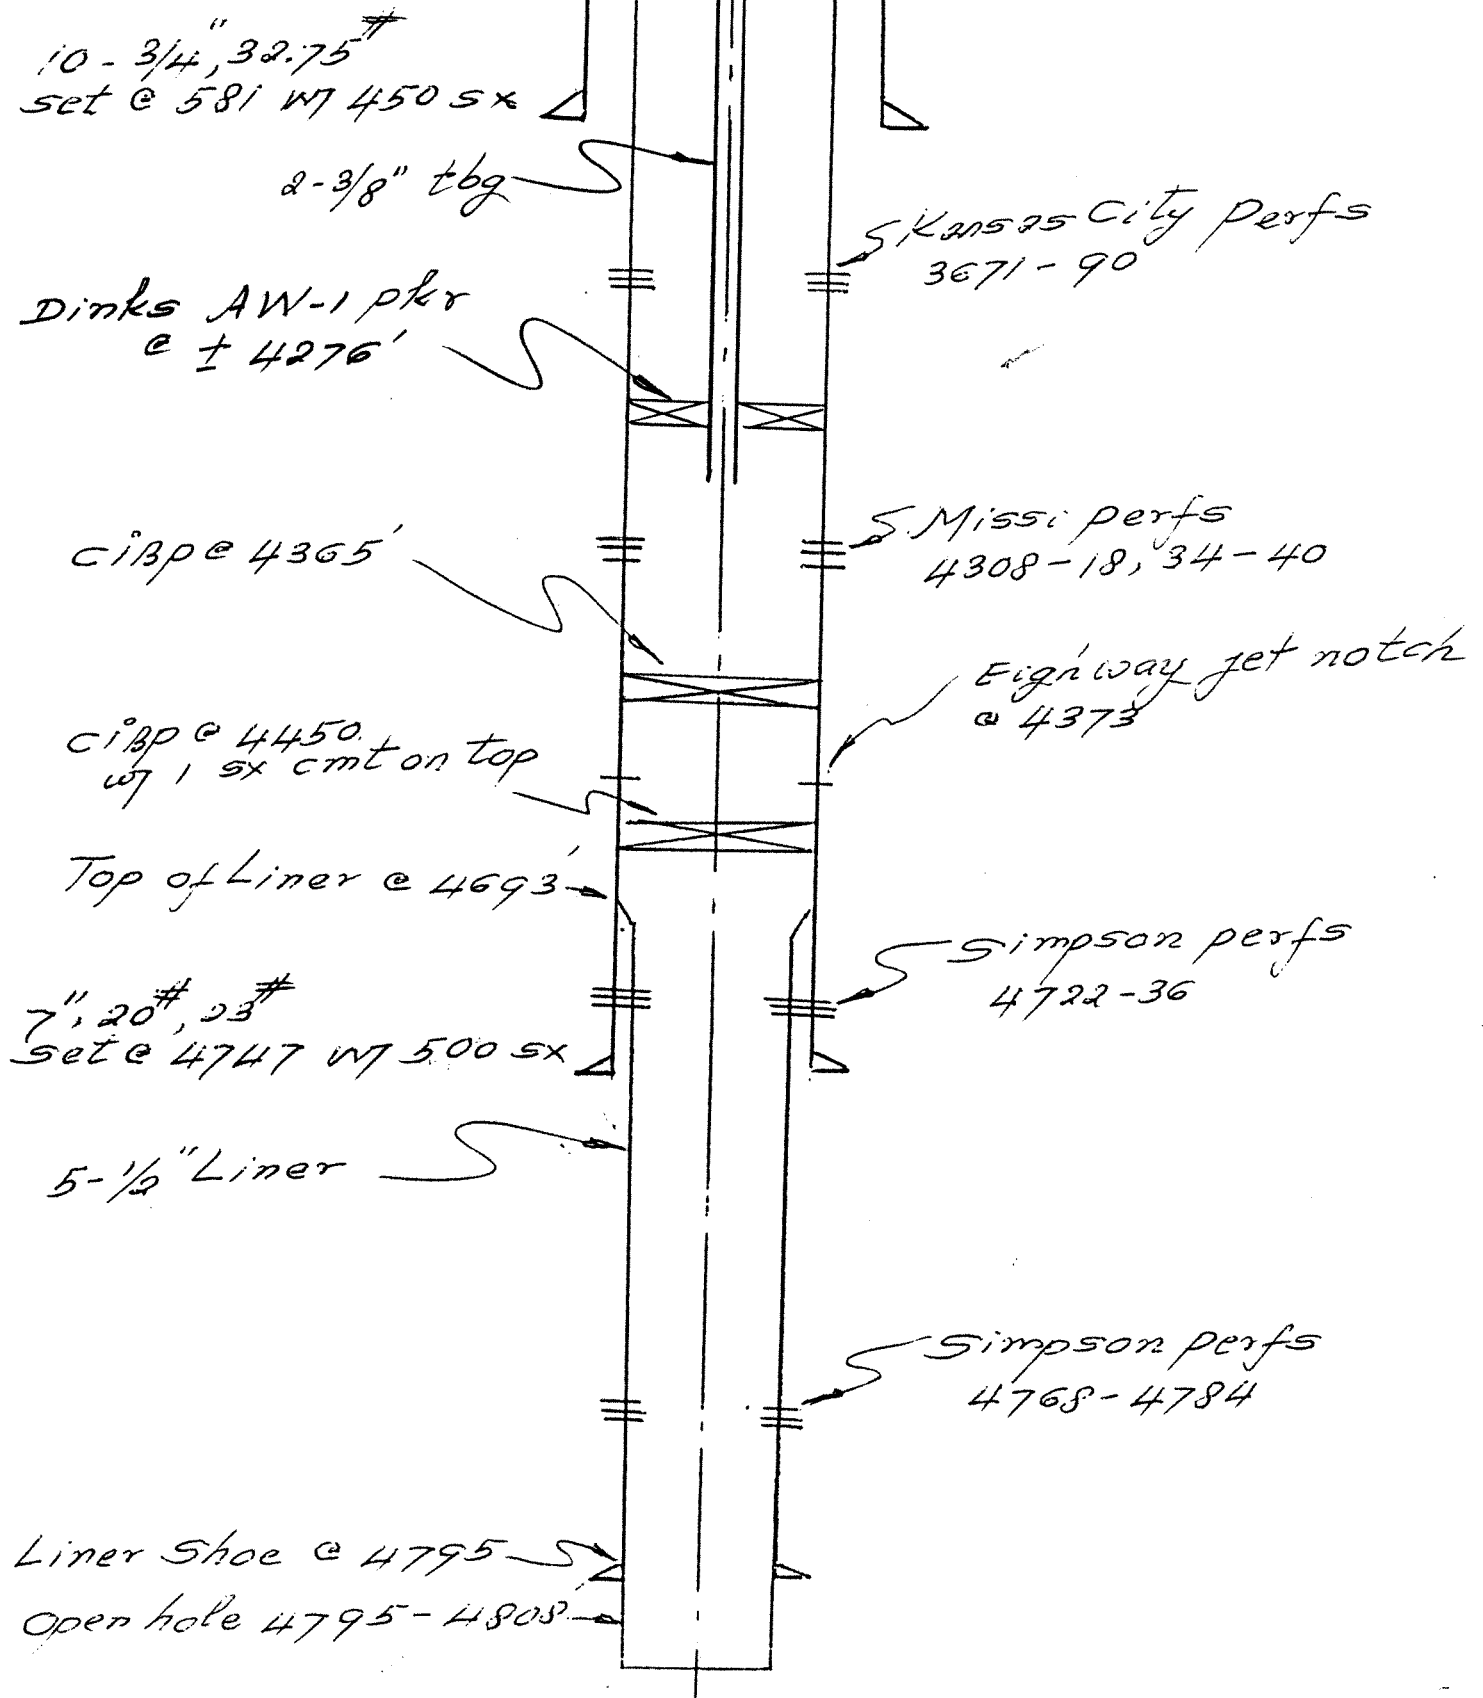 10-3/4", 32.75#
set @ 581 w/ 450 sx
2-3/8" tbg
Kansas City perfs
3671-90
Dinks AW-1 pkr
@ ± 4276'
CIBP @ 4365'
Missi perfs
4308-18, 34-40
Eighway jet notch
@ 4373
CIBP @ 4450
w/ 1 sx cmt on top
Top of Liner @ 4693'
Simpson perfs
4722-36
7", 20#, 23#
set @ 4747 w/ 500 sx
5-1/2" Liner
Simpson perfs
4768-4784
Liner Shoe @ 4795
Open hole 4795-4808'